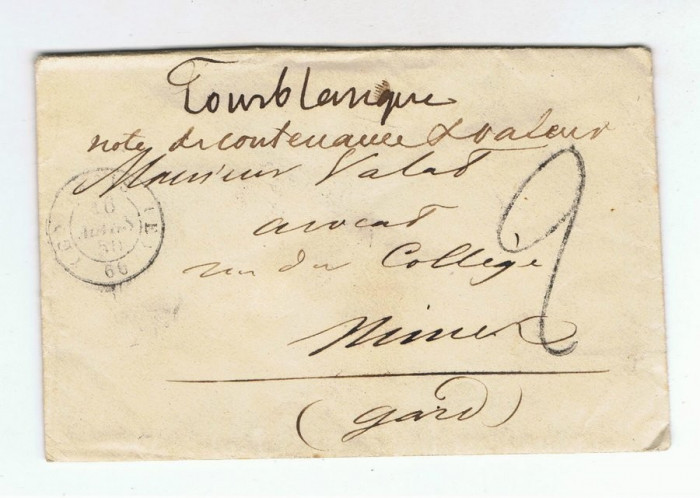 Tourblanque
note de contenance & valeur
Monsieur Valat
avocat
rue du Collège
Nimes
(Gard)
2
66